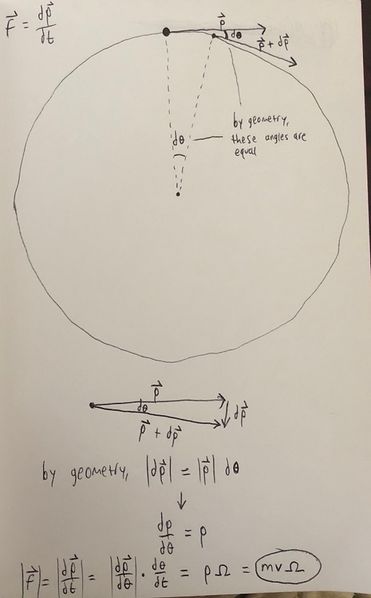 F⃗ = dp⃗/dt
p⃗
dθ
p⃗ + dp⃗
by geometry,
these angles are
equal
dθ
p⃗
dθ
dp⃗
p⃗ + dp⃗
by geometry, |dp⃗| = |p⃗| dθ
↓
dp/dθ = p
|F⃗| = |dp⃗/dt| = |dp⃗/dθ| · dθ/dt = pΩ = mvΩ